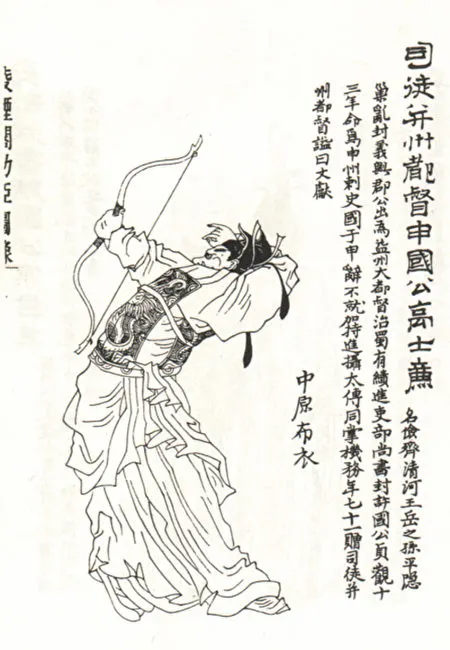 司徒并州都督申國公高士廉 名儉齊清河王岳之孫平隱
巢亂封義興郡公出爲益州大都督治蜀有績進吏部尚書封許國公貞觀十
三年命爲申州刺史國于申辭不就特進攝太傅同掌機務年七十一贈司徒并
州都督謚曰文獻
中原布衣
凌煙閣功臣圖像